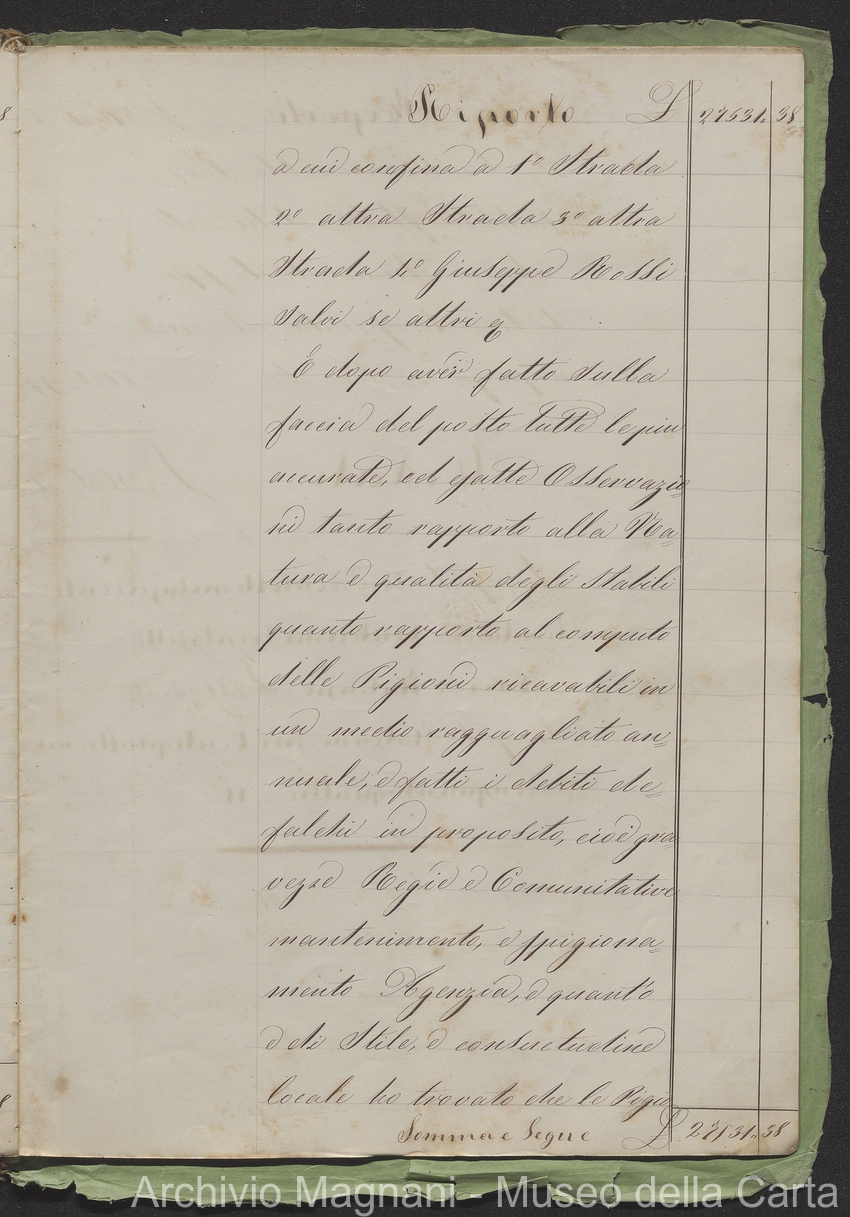 Riporto £ 27631. 38
a cui confina a 1° Strada
2° altra Strada 3° altra
Strada 4° Giuseppe Rossi
salvi se altri &
E dopo aver fatto sulla
faccia del posto tutte le piu
accurate, ed esatte Osservazio=
ni tanto rapporto alla Na=
tura e qualità degli Stabili
quanto rapporto al computo
delle Pigioni ricavabili in
un medio ragguagliato an=
nuale, e fatti i debiti de=
falchi in proposito, cioè gra=
vezze Regie e Comunitative
mantenimento, e spigiona=
mento Agenzia, e quant'o
è di Stile, e consuetudine
locale ho trovato che le Pigio
Somma e Segue £ 27631. 38
Archivio Magnani - Museo della Carta